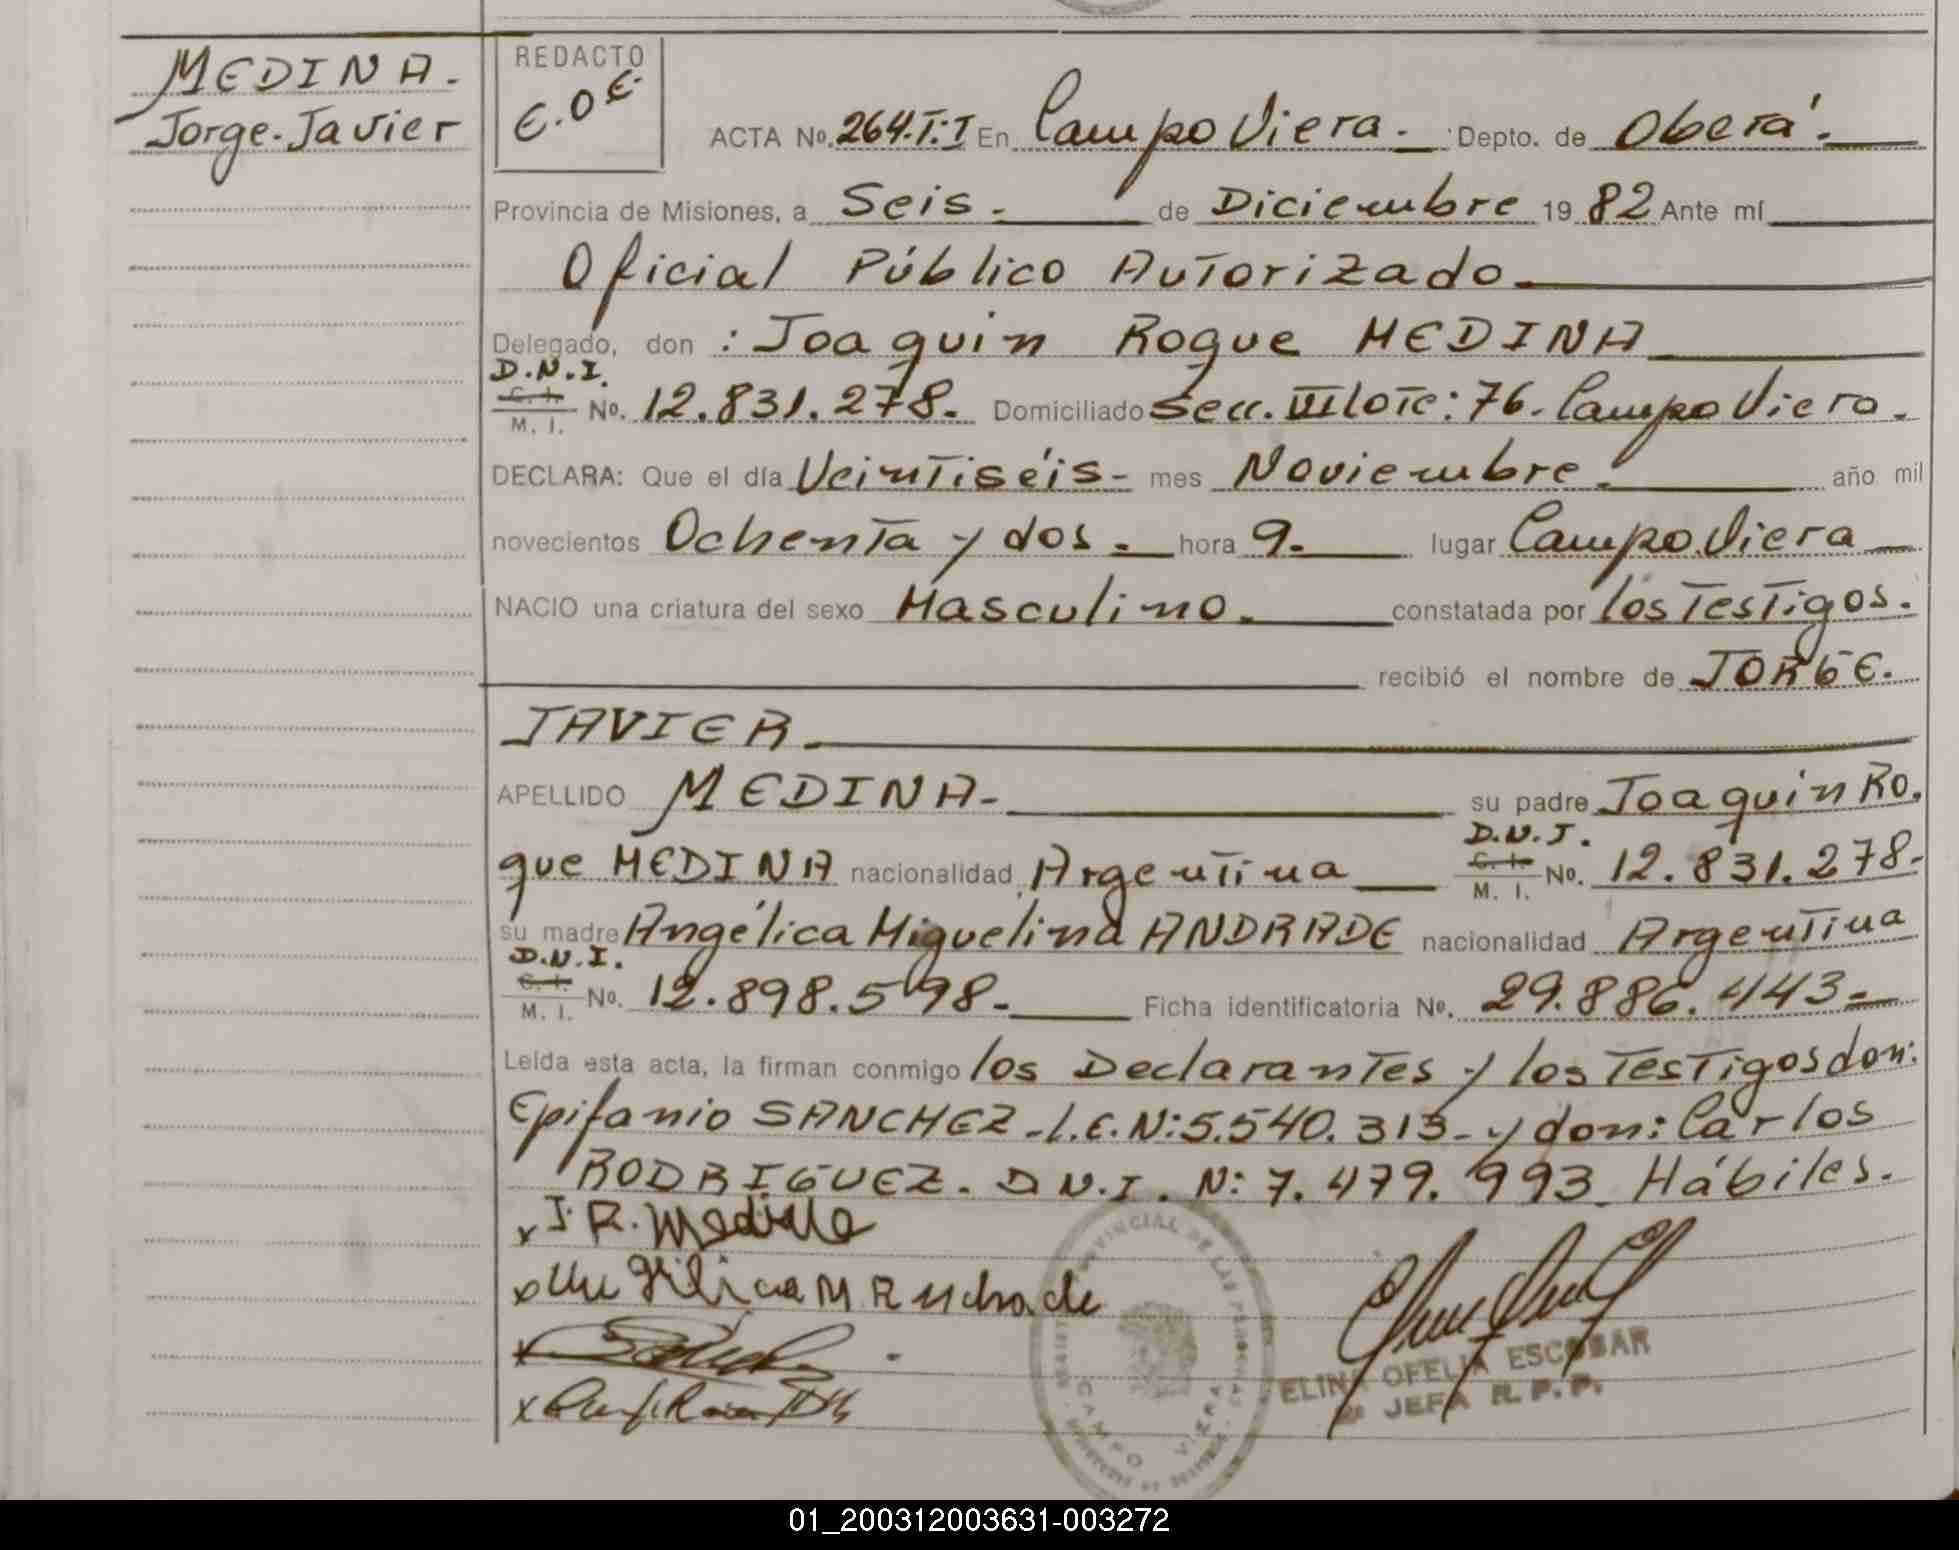 MEDINA.
Jorge. Javier
REDACTO
E.O.E.
ACTA No. 264.T:I En Campo Viera. Depto. de Oberá.
Provincia de Misiones, a Seis. de Diciembre 19 82 Ante mí
Oficial Público Autorizado.
Delegado, don : Joaquin Roque MEDINA
D.N.I.
C. I.
M. I. No. 12.831.278. Domiciliado Secc. III lote: 76. Campo Viera.
DECLARA: Que el día Veintiséis- mes Noviembre. año mil
novecientos Ochenta y dos. hora 9. lugar Campo Viera
NACIO una criatura del sexo Masculino. constatada por los Testigos.
recibió el nombre de JORGE.
JAVIER
APELLIDO MEDINA- su padre Joaquin Ro.
D.N.I.
que MEDINA nacionalidad Argentina C. I. M. I. No. 12.831.278.
su madre Angélica Miguelina ANDRADE nacionalidad Argentina
D.N.I.
C. I.
M. I. No. 12.898.598. Ficha identificatoria No. 29.886.443-
Leída esta acta, la firman conmigo los Declarantes y los Testigos don:
Epifanio SANCHEZ-L.E.N:5.540.313-y don: Carlos
RODRIGUEZ. D.N.I. N: 7.479.993. Hábiles.
x J. R. Medina
x Angélica M Andrade
x
x
PROVINCIAL DE LAS PERSONAS
CAMPO VIERA
ELINA OFELIA ESCOBAR
JEFA R. P. P.
01_200312003631-003272